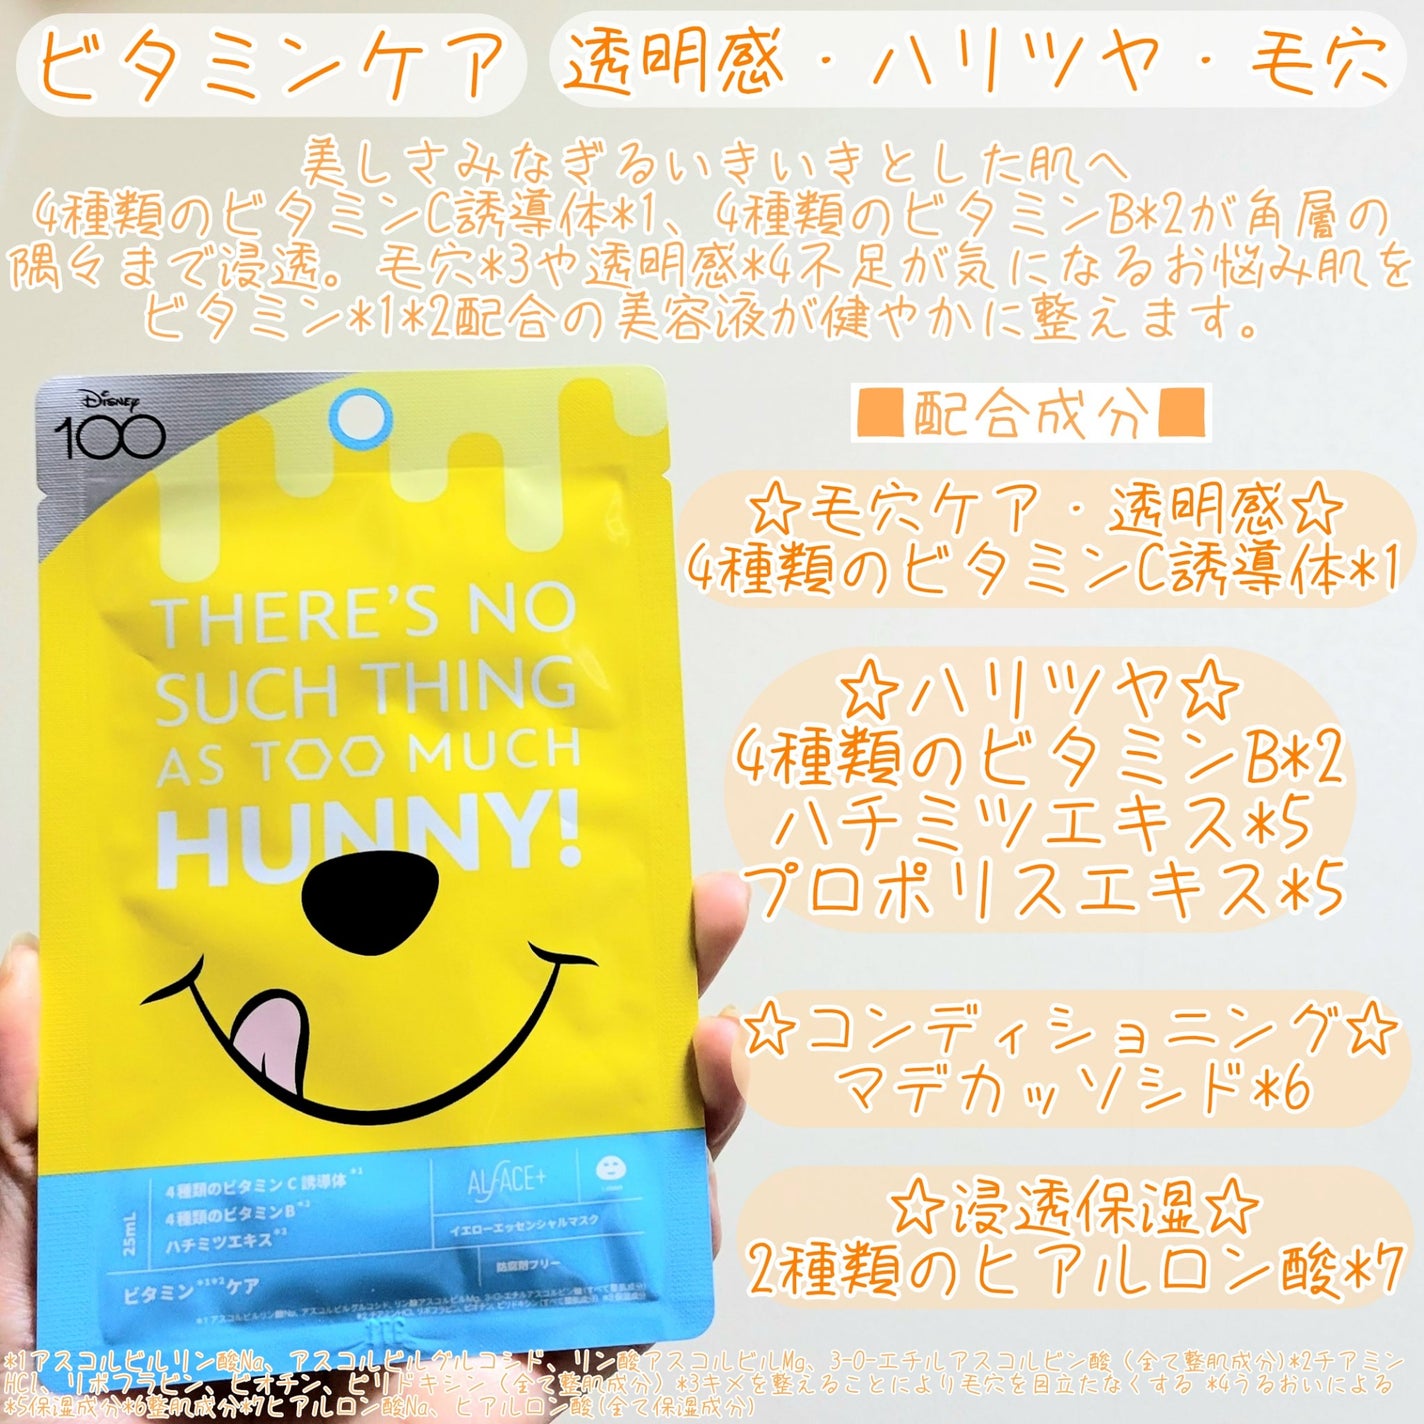 ビタミンケア
透明感・ハリツヤ・毛穴
美しさみなぎるいきいきとした肌へ
4種類のビタミンC誘導体*1、4種類のビタミンB*2が角層の
隅々まで浸透。毛穴*3や透明感*4不足が気になるお悩み肌を
ビタミン*1*2配合の美容液が健やかに整えます。
■配合成分■
☆毛穴ケア・透明感☆
4種類のビタミンC誘導体*1
☆ハリツヤ☆
4種類のビタミンB*2
ハチミツエキス*5
プロポリスエキス*5
☆コンディショニング☆
マデカッソシド*6
☆浸透保湿☆
2種類のヒアルロン酸*7
Disney
100
THERE'S NO
SUCH THING
AS TOO MUCH
HUNNY!
25mL
4種類のビタミンC誘導体*1
4種類のビタミンB*2
ハチミツエキス*3
ビタミン*1*2ケア
ALFACE+
イエローエッセンシャルマスク
防腐剤フリー
*1アスコルビルリン酸Na、アスコルビルグルコシド、リン酸アスコルビルMg、3-O-エチルアスコルビン酸(全て整肌成分)*2チアミン
HCl、リボフラビン、ビオチン、ピリドキシン(全て整肌成分)*3キメを整えることにより毛穴を目立たなくする *4うるおいによる
*5保湿成分*6整肌成分*7ヒアルロン酸Na、ヒアルロン酸(全て保湿成分)